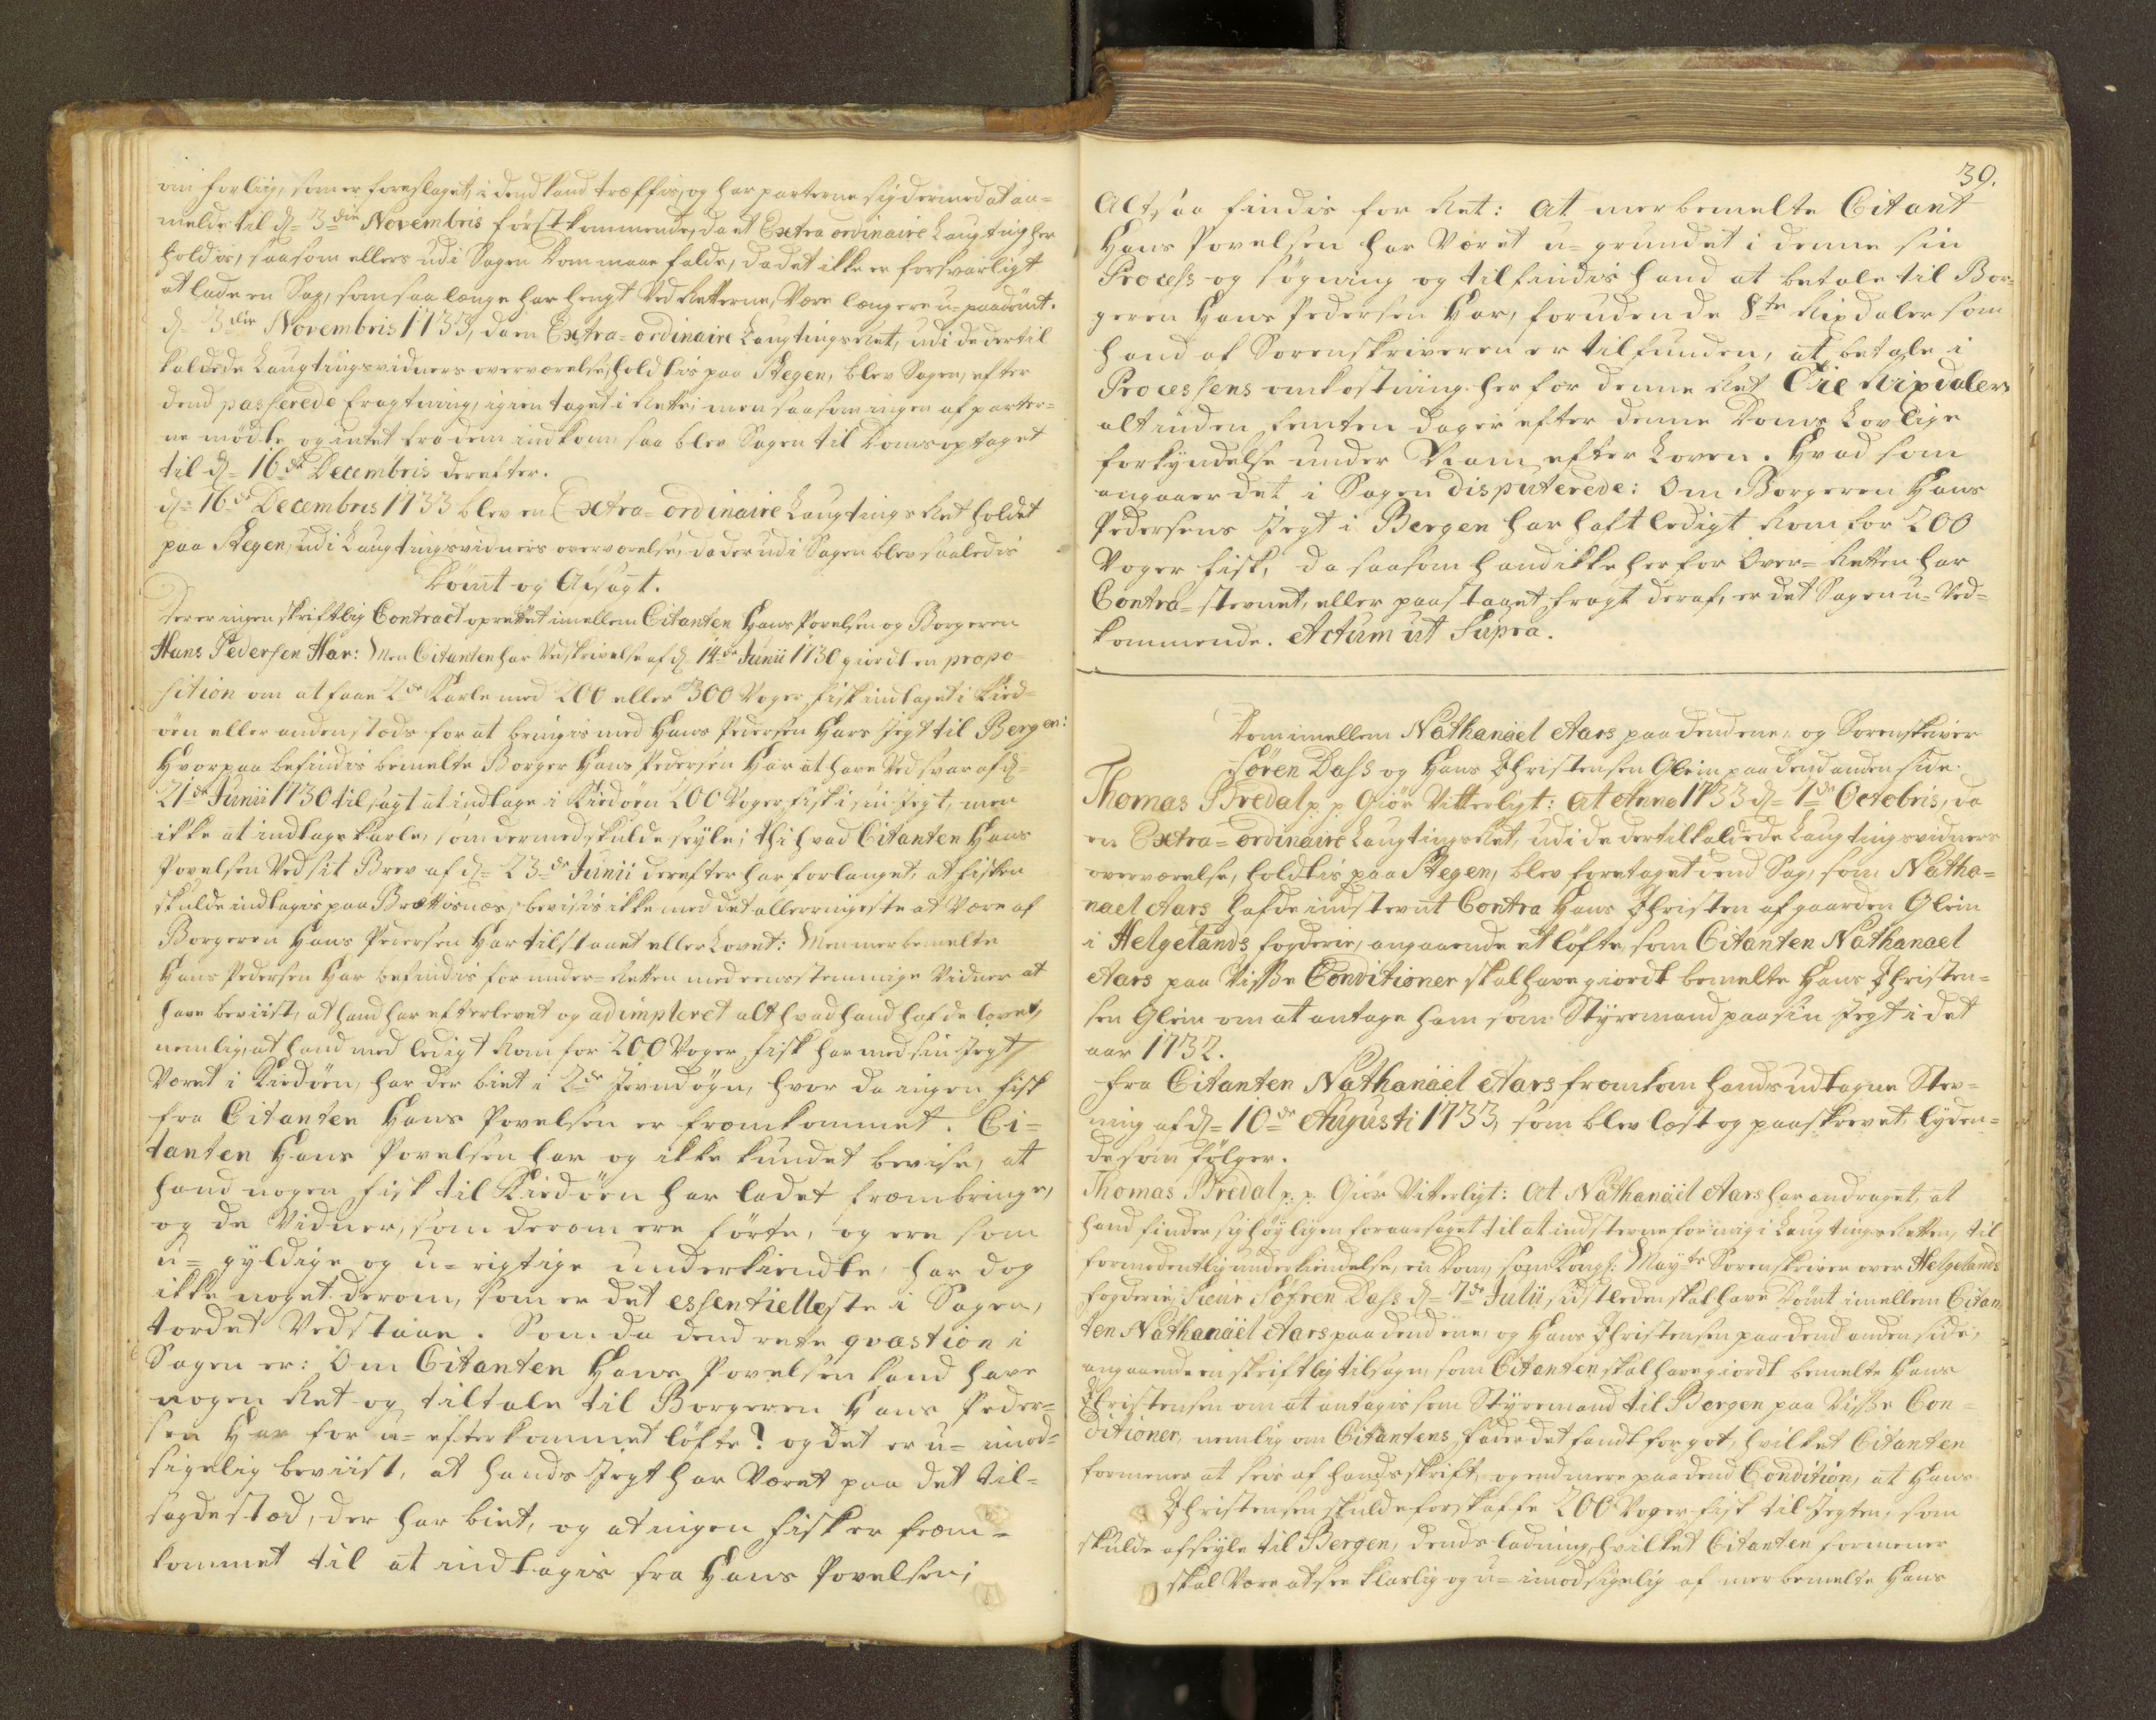 om forliig, som er foreslaget, i dend kand træffis, og har parterne sig dermed at an=
melde til d= 3die Novembris först kommende, da et Extra ordinaire Laugting her
holdis, saasom ellers udi Sagen Dom maae falde, da det ikke er forsvarligt
at lade en Sag, som saa længe har hengt Ved Retterne, Være længere u=paadömt.
d= 3die Novembris 1733, da en Extra=ordinaire Laugtings Ret, udi de dertil
kaldede Laugtingsvidners overværelse, holdtis paa Stegen, blev Sagen, efter
dend passerede fragtning, igien taget i Rette; men saasom ingen af parter=
ne mödte, og intet fra dem indkom, saa blev Sagen til Doms optaget
til d= 16de Decembris derefter.
d= 16de Decembris 1733 blev en Extra=ordinaire Laugtings Ret holdet
paa Stegen, udi Laugtingsvidners overværelse, da der udi Sagen blev saaledis
Dömt og Afsagt.
Der er ingen skriftlig Contract oprettet imellem Citanten Hans Povelsen og Borgeren
Hans Pedersen Har: Men Citanten har Ved skrivelse af d. 14de Junii 1730 giordt en propo=
sition om at faae 2de Karle med 200 eller 300 Voger fisk indtaget i Kied=
öen eller andenstæds for at bringis med Hans Pedersen Hars Jegt til Bergen:
Hvorpaa befindis bemelte Borger Hans Pedersen Har at have Ved svar af d=
21de Junii 1730 tilsagt at indtage i Kiedöen 200 Voger fisk i sin Jegt, men
ikke at indtage karle, som dermed skulde seyle; thi hvad Citanten Hans
Povelsen Ved sit Brev af d= 23de Junii derefter har forlanget, at fisken
skulde indtagis paa Brættesnæs, bevisis ikke med det allerringeste at Være af
Borgeren Hans Pedersen Har tilstaaet eller Lovet: Men merbemelte
Hans Pedersen Har befindis for under=Retten med eensstemmige Vidner at
have beviist, at hand har efterlevet og adimpleret alt hvad hand hafde lovet,
nemlig, at hand med ledigt Rom for 200 Voger fisk har med sin Jegt
Været i Kiedöen, har der biet i 2de Jevndögn, hvor da ingen fisk
fra Citanten Hans Povelsen er fremkommet. Ci=
tanten Hans Povelsen har og ikke kundet bevise, at
hand nogen fisk til Kiedöen har ladet frembringe,
og de Vidner, som derom ere förte, og ere som
u=gyldige og u=rigtige underkiendte, har dog
ikke noget derom, som er det essentielleste i Sagen,
tordet Vedstaae. Som da dend rette qvæstion i
Sagen er: Om Citanten Hans Povelsen kand have
nogen Ret og tiltale til Borgeren Hans Peder=
sen Har for u=efterkommet löfte? og det er u=imod=
sigelig beviist, at hands Jegt har Været paa det til=
sagde stæd, der har biet, og at ingen fisk er frem=
kommet til at indtagis fra Hans Povelsen;
39.
Altsaa findis for Ret: At merbemelte Citant
Hans Povelsen har Været u=grundet i denne sin
Process og sögning og tilfindis hand at betale til Bor=
geren Hans Pedersen Har, foruden de 8te Rixdaler som
hand af Sorenskriveren er tilfunden, at betale i
Processens omkostning her for denne Ret Tie Rixdaler,
alt inden femten dager efter denne Doms Lovlige
forkyndelse under Nam efter Loven. Hvad som
angaaer det i Sagen disputerede: Om Borgeren Hans
Pedersens Jegt i Bergen har haft ledigt Rom for 200
Voger fisk, da saasom hand ikke her for Over=Retten har
Contra=stevnet, eller paastaaet fragt deraf, er det Sagen u=Ved=
kommende. Actum ut Supra.
Dom imellem Nathanäel Aars paa dend ene, og Sorenskriver
Sören Dass og Hans Christensen Glein paa dend anden side.
Thomas Bredal p. p. Giör Vitterligt: At Anno 1733 d= 1de Octobris, da
en Extra=ordinaire Laugtings Ret, udi de dertil kaldede Laugtingsvidners
overværelse, holdtis paa Stegen, blev foretaget dend Sag, som Natha=
nael Aars hafde indstevnt Contra Hans Christen af gaarden Glein
i Helgelands fogderie, angaaende et löfte, som Citanten Nathanael
Aars paa Visse Conditioner skal have giordt bemelte Hans Christen=
sen Glein om at antage ham som Styremand paa sin Jegt i det
aar 1732.
Fra Citanten Nathanäel Aars fremkom hands udtagne Stev=
ning af d= 10de Augusti 1733, som blev læst og paaskrevet, lyden=
de som fölger.
Thomas Bredal p. p. Giör Vitterligt: At Nathanäel Aars har andraget, at
hand finder sig höyligen foraarsaget til at indstevne for mig i Laugtings Retten, til
formodentlig underkiendelse, en Dom, som Kongl: Mayts Sorenskriver over Helgelands
fogderie, Sieur Söfren Dass d= 7de Julii sidstleden skal have dömt imellem Citan=
ten Nathanäel Aars paa dend ene, og Hans Christensen paa dend anden side,
angaaende en skriftlig tilsagn, som Citanten skal have giordt bemelte Hans
Christensen om at antagis som Styremand til Bergen paa Visse Con=
ditioner, nemlig om Citantens fader det fandt for got, hvilket Citanten
formener at seis af hands skrift, og end mere paa dend Condition, at Hans
Christensen skulde forskaffe 200 Voger fisk til Jegten, som
skulde afseyle til Bergen, dends ladning, hvilket Citanten formener
skal Være at see klarlig og u=imodsigelig af merbemelte Hans